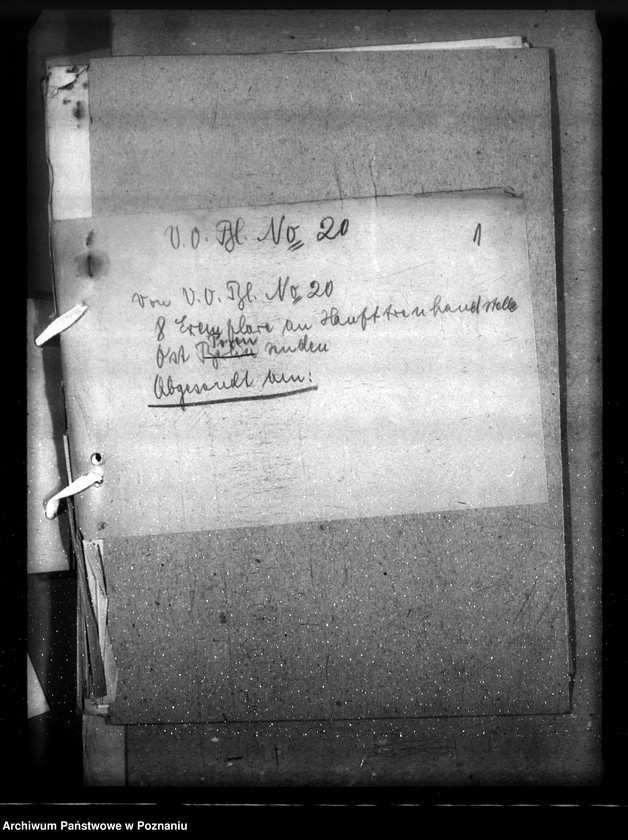 V.O. Bl. No 20
1
Von V.O. Bl. No 20
8 Exemplare an Haupttreuhandstelle
Posen
Ost senden
Abgesandt am:
Archiwum Państwowe w Poznaniu